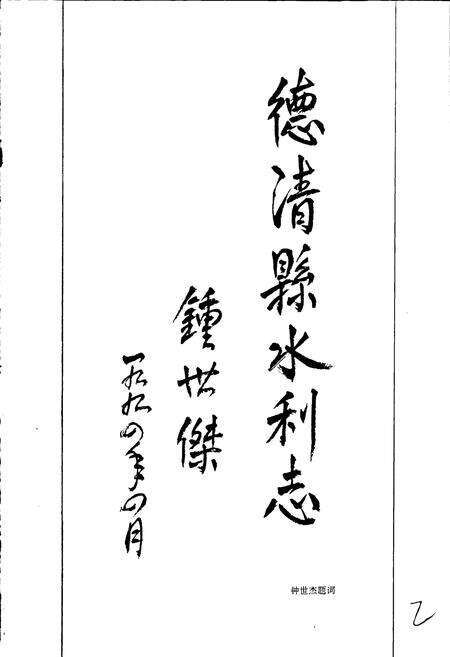 德清縣水利志
鍾世傑
一九九四年四月
钟世杰题词